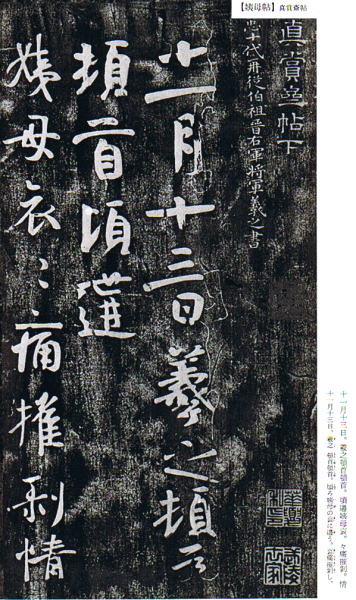 【姨母帖】真賞斎帖
真賞斎帖下
臣十代再從伯祖晉右軍將軍羲之書
十一月十三日羲之頓首
頓首頃遘
姨母哀〻痛摧剥情
十一月十三日。羲之頓首頓首。頃遘姨母哀。々痛摧剥。情
十一月十三日、羲之 頓首頓首。頃ろ姨母の哀に遘う。哀痛摧剥し、